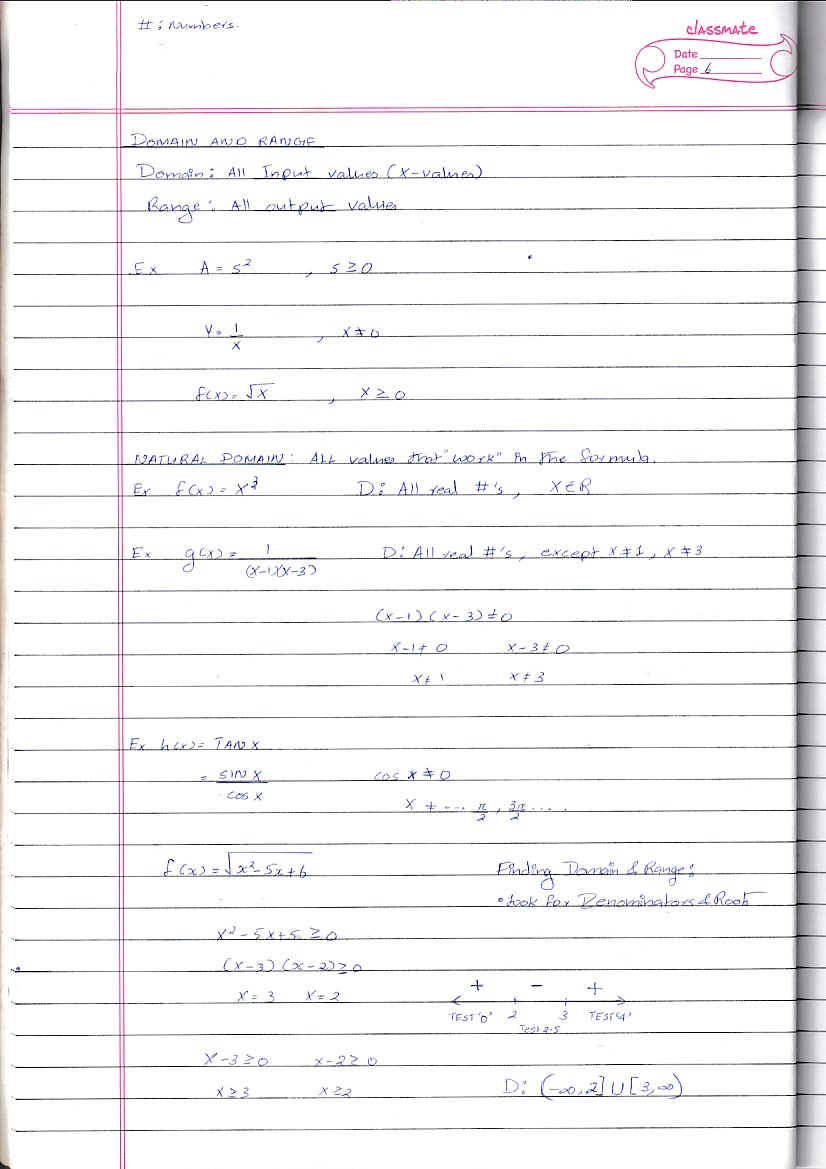 #: Numbers.
classmate
Date
Page 6
DOMAIN AND RANGE
Domain: All Input values (X-values)
Range: All output values
Ex A = s² , s ≥ 0
Y = 1/x , x ≠ 0
f(x) = √x , x ≥ 0
NATURAL DOMAIN: ALL values that "work" in the formula.
Ex f(x) = x³ D: All real #'s, X∈R
Ex g(x) = 1/((x-1)(x-3)) D: All real #'s, except x ≠ 1, x ≠ 3
(x-1)(x-3) ≠ 0
x-1 ≠ 0 x-3 ≠ 0
x ≠ 1 x ≠ 3
Ex h(x) = TAN X
= SIN X / COS X cos x ≠ 0
x ≠ ... π/2, 3π/2 ....
f(x) = √(x²-5x+6) Finding Domain & Range:
• Look for Denominators & Root
x²-5x+5 ≥ 0
(x-3)(x-2) ≥ 0
+ - +
x = 3 x = 2
TEST '0' 2 3 TEST '4'
Test 2.5
x-3 ≥ 0 x-2 ≥ 0
x ≥ 3 x ≥ 2 D: (-∞, 2] ∪ [3, ∞)